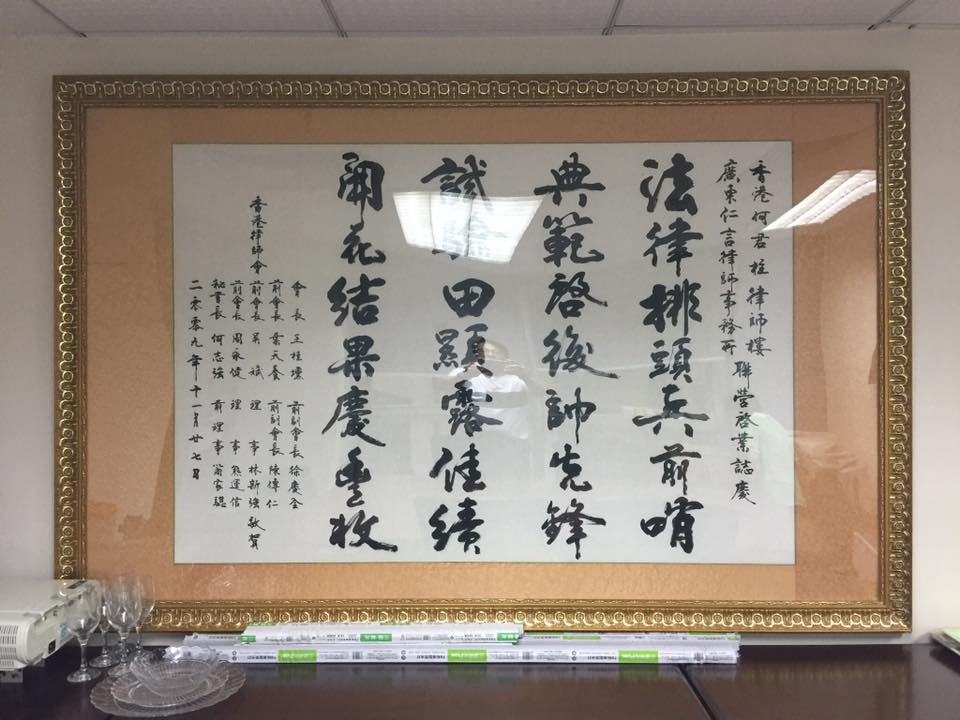 香港何君柱律師樓
廣東仁言律師事務所
聯營啓業誌慶
法律排頭兵前哨
典範啓後帥先鋒
試驗田顯露佳績
開花結果慶豐收
香港律師會
會長 王桂壎 前副會長 徐慶全
前會長 葉天養 前副會長 陳傳仁
前會長 吳斌 理事 林新強 敬賀
前會長 周永健 理事 熊運信
秘書長 何志強 前理事 翁家
二零零九年十一月廿七日